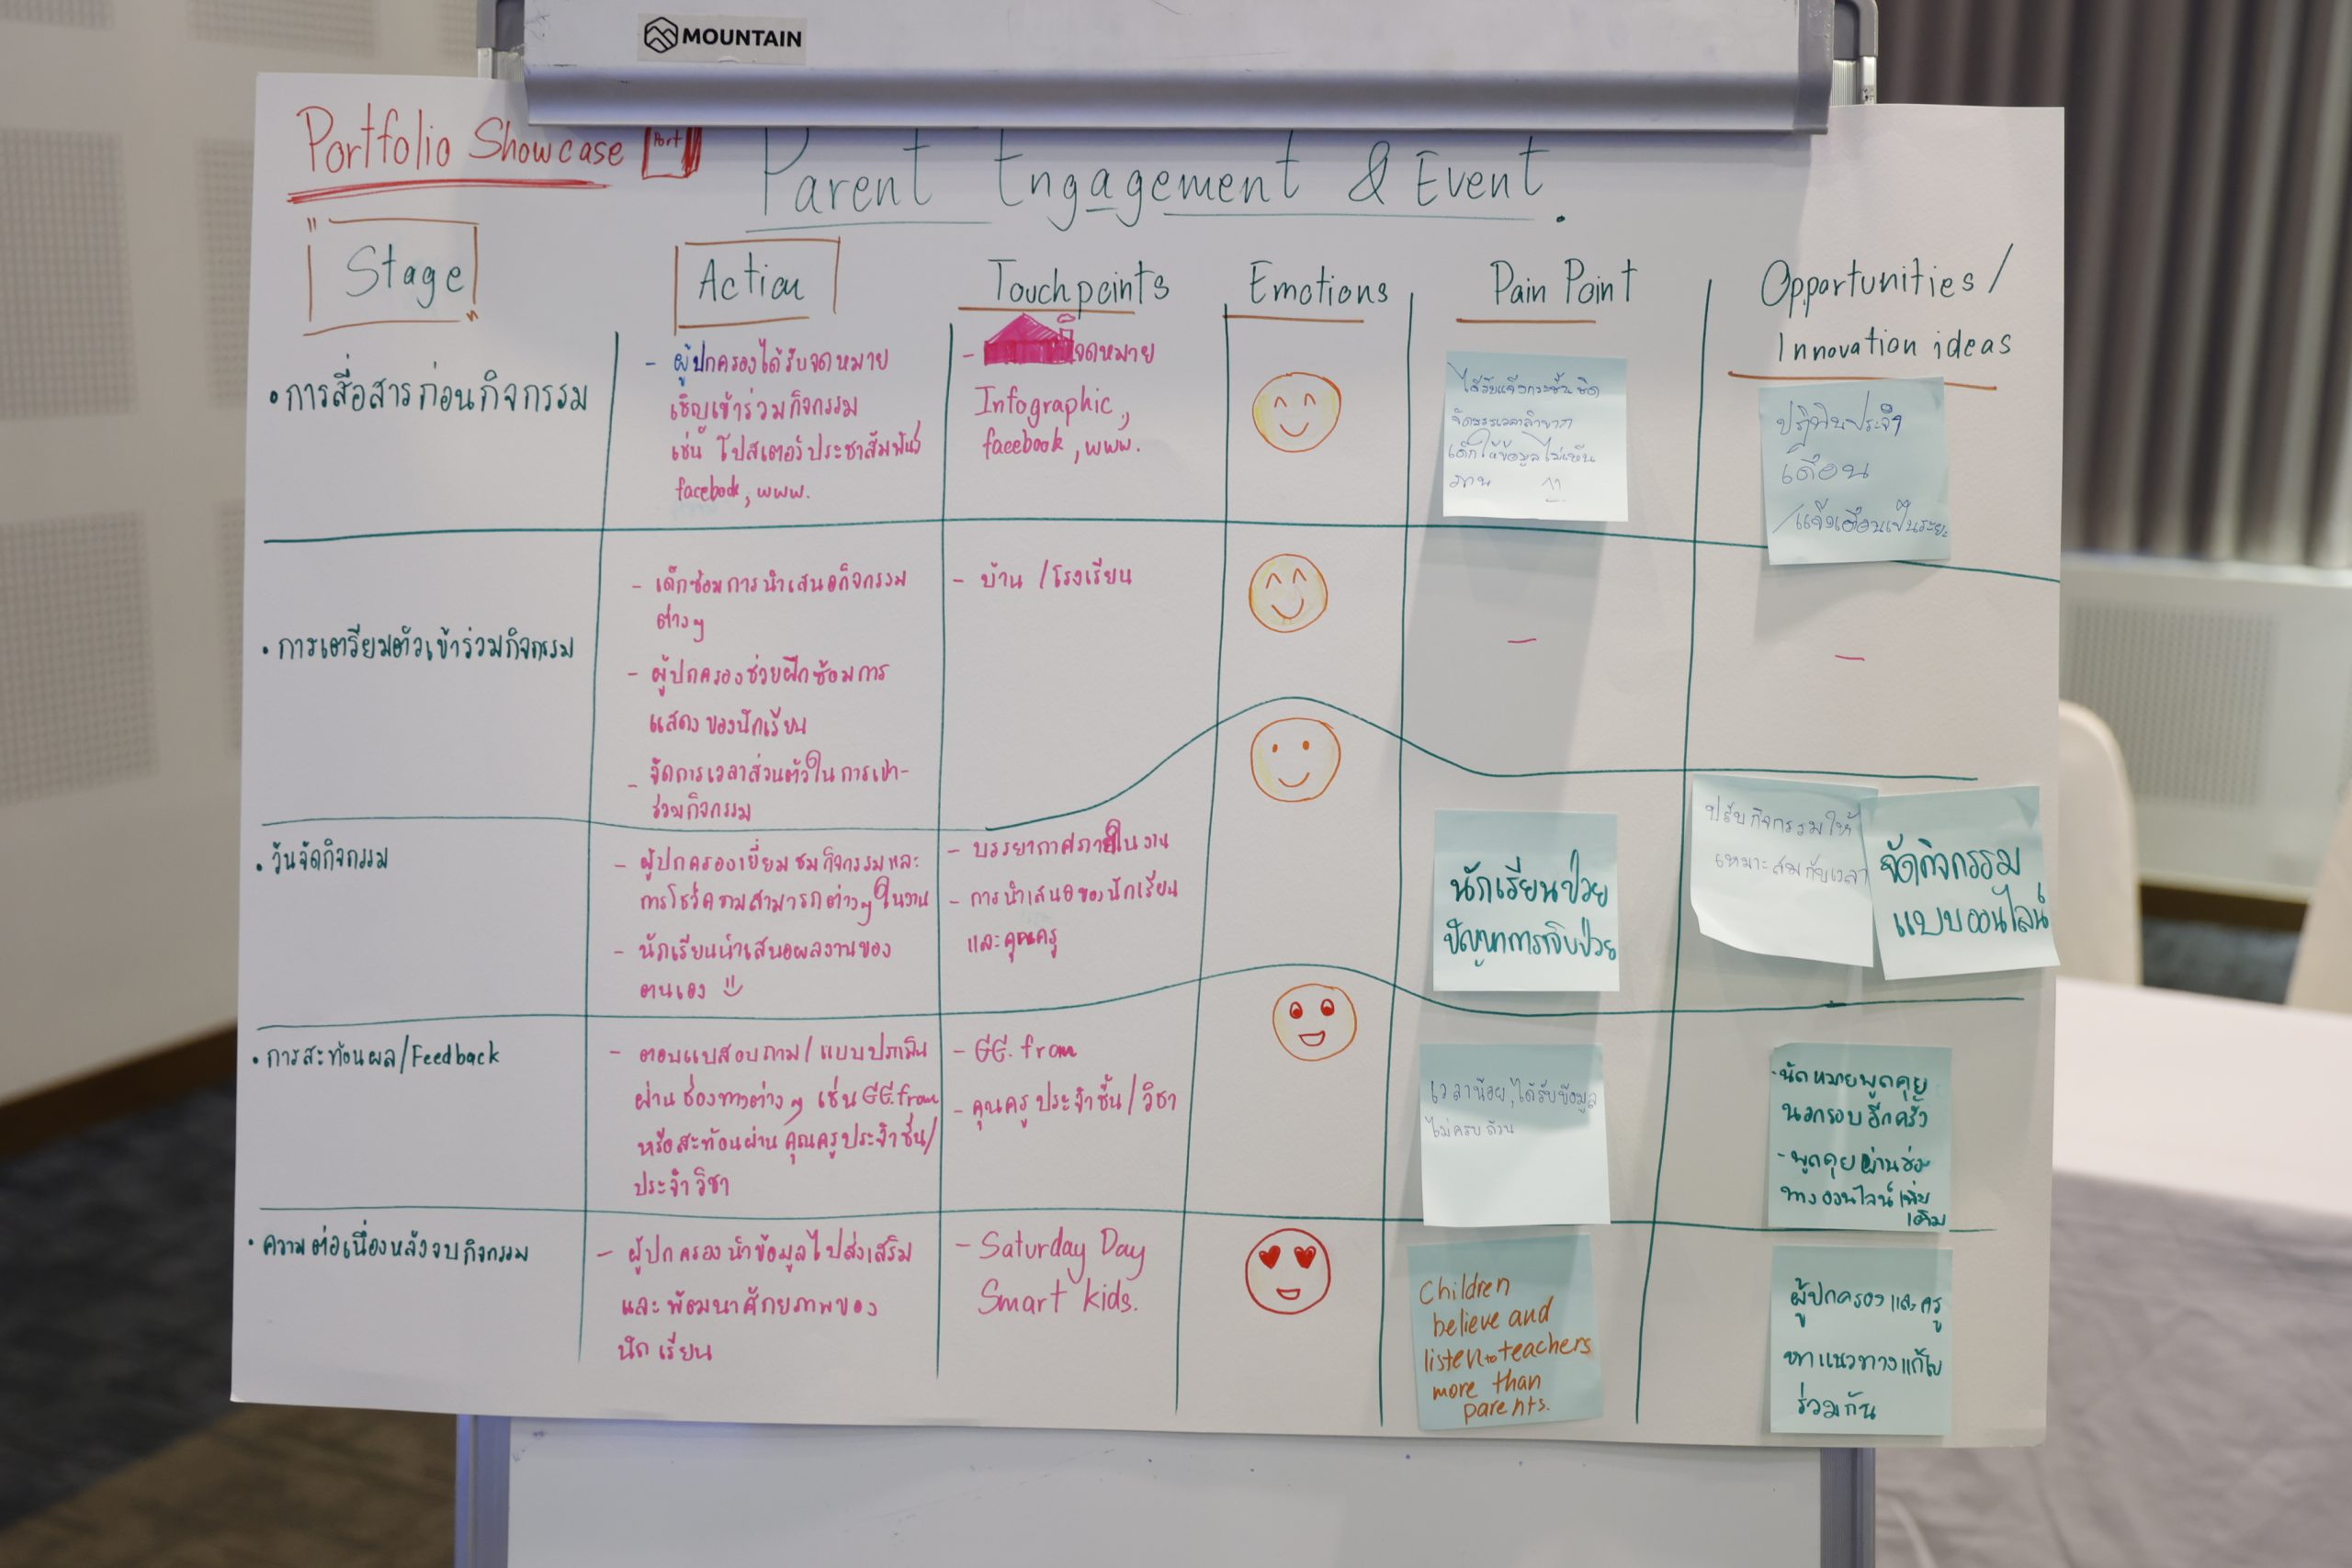 MOUNTAIN
Portfolio Showcase
Port
Parent Engagement & Event.
Stage
Action
Touchpoints
Emotions
Pain Point
Opportunities/
Innovation ideas
• การสื่อสารก่อนกิจกรรม
- ผู้ปกครองได้รับจดหมาย
เชิญเข้าร่วมกิจกรรม
เช่น โปสเตอร์ประชาสัมพันธ์
facebook, www.
- จดหมาย
Infographic,
facebook, www.
ได้รับแจ้งกระชั้นชิด
เด็กให้ข้อมูลไม่
ปฏิทินประจำ
เดือน
/แจ้งเตือนเป็นระยะ
• การเตรียมตัวเข้าร่วมกิจกรรม
- เด็กซ้อมการนำเสนอกิจกรรม
ต่างๆ
- ผู้ปกครองช่วยฝึกซ้อมการ
แสดงของนักเรียน
- จัดการเวลาส่วนตัวในการเข้า-
ร่วมกิจกรรม
- บ้าน /โรงเรียน
-
-
• วันจัดกิจกรรม
- ผู้ปกครองเยี่ยมชมกิจกรรมและ
การโชว์ความสามารถต่างๆในงาน
- นักเรียนนำเสนอผลงานของ
ตนเอง
- บรรยากาศภายในงาน
- การนำเสนอของนักเรียน
และคุณครู
นักเรียนป่วย
ปัญหาการเจ็บป่วย
ปรับกิจกรรมให้
เหมาะสมกับเวลา
จัดกิจกรรม
แบบออนไลน์
• การสะท้อนผล/Feedback
- ตอบแบบสอบถาม/แบบประเมิน
ผ่านช่องทางต่างๆ เช่น GG.from
หรือสะท้อนผ่านคุณครูประจำชั้น/
ประจำวิชา
- GG. from
- คุณครูประจำชั้น/วิชา
เวลาน้อย, ได้รับข้อมูล
ไม่ครบถ้วน
- นัดหมายพูดคุย
นอกรอบอีกครั้ง
- พูดคุยผ่านช่อง
ทางออนไลน์เพิ่ม
เติม
• ความต่อเนื่องหลังจบกิจกรรม
- ผู้ปกครองนำข้อมูลไปส่งเสริม
และพัฒนาศักยภาพของ
นักเรียน
- Saturday Day
Smart kids.
Children
believe and
listen to teachers
more than
parents.
ผู้ปกครองและครู
หาแนวทางแก้ไข
ร่วมกัน